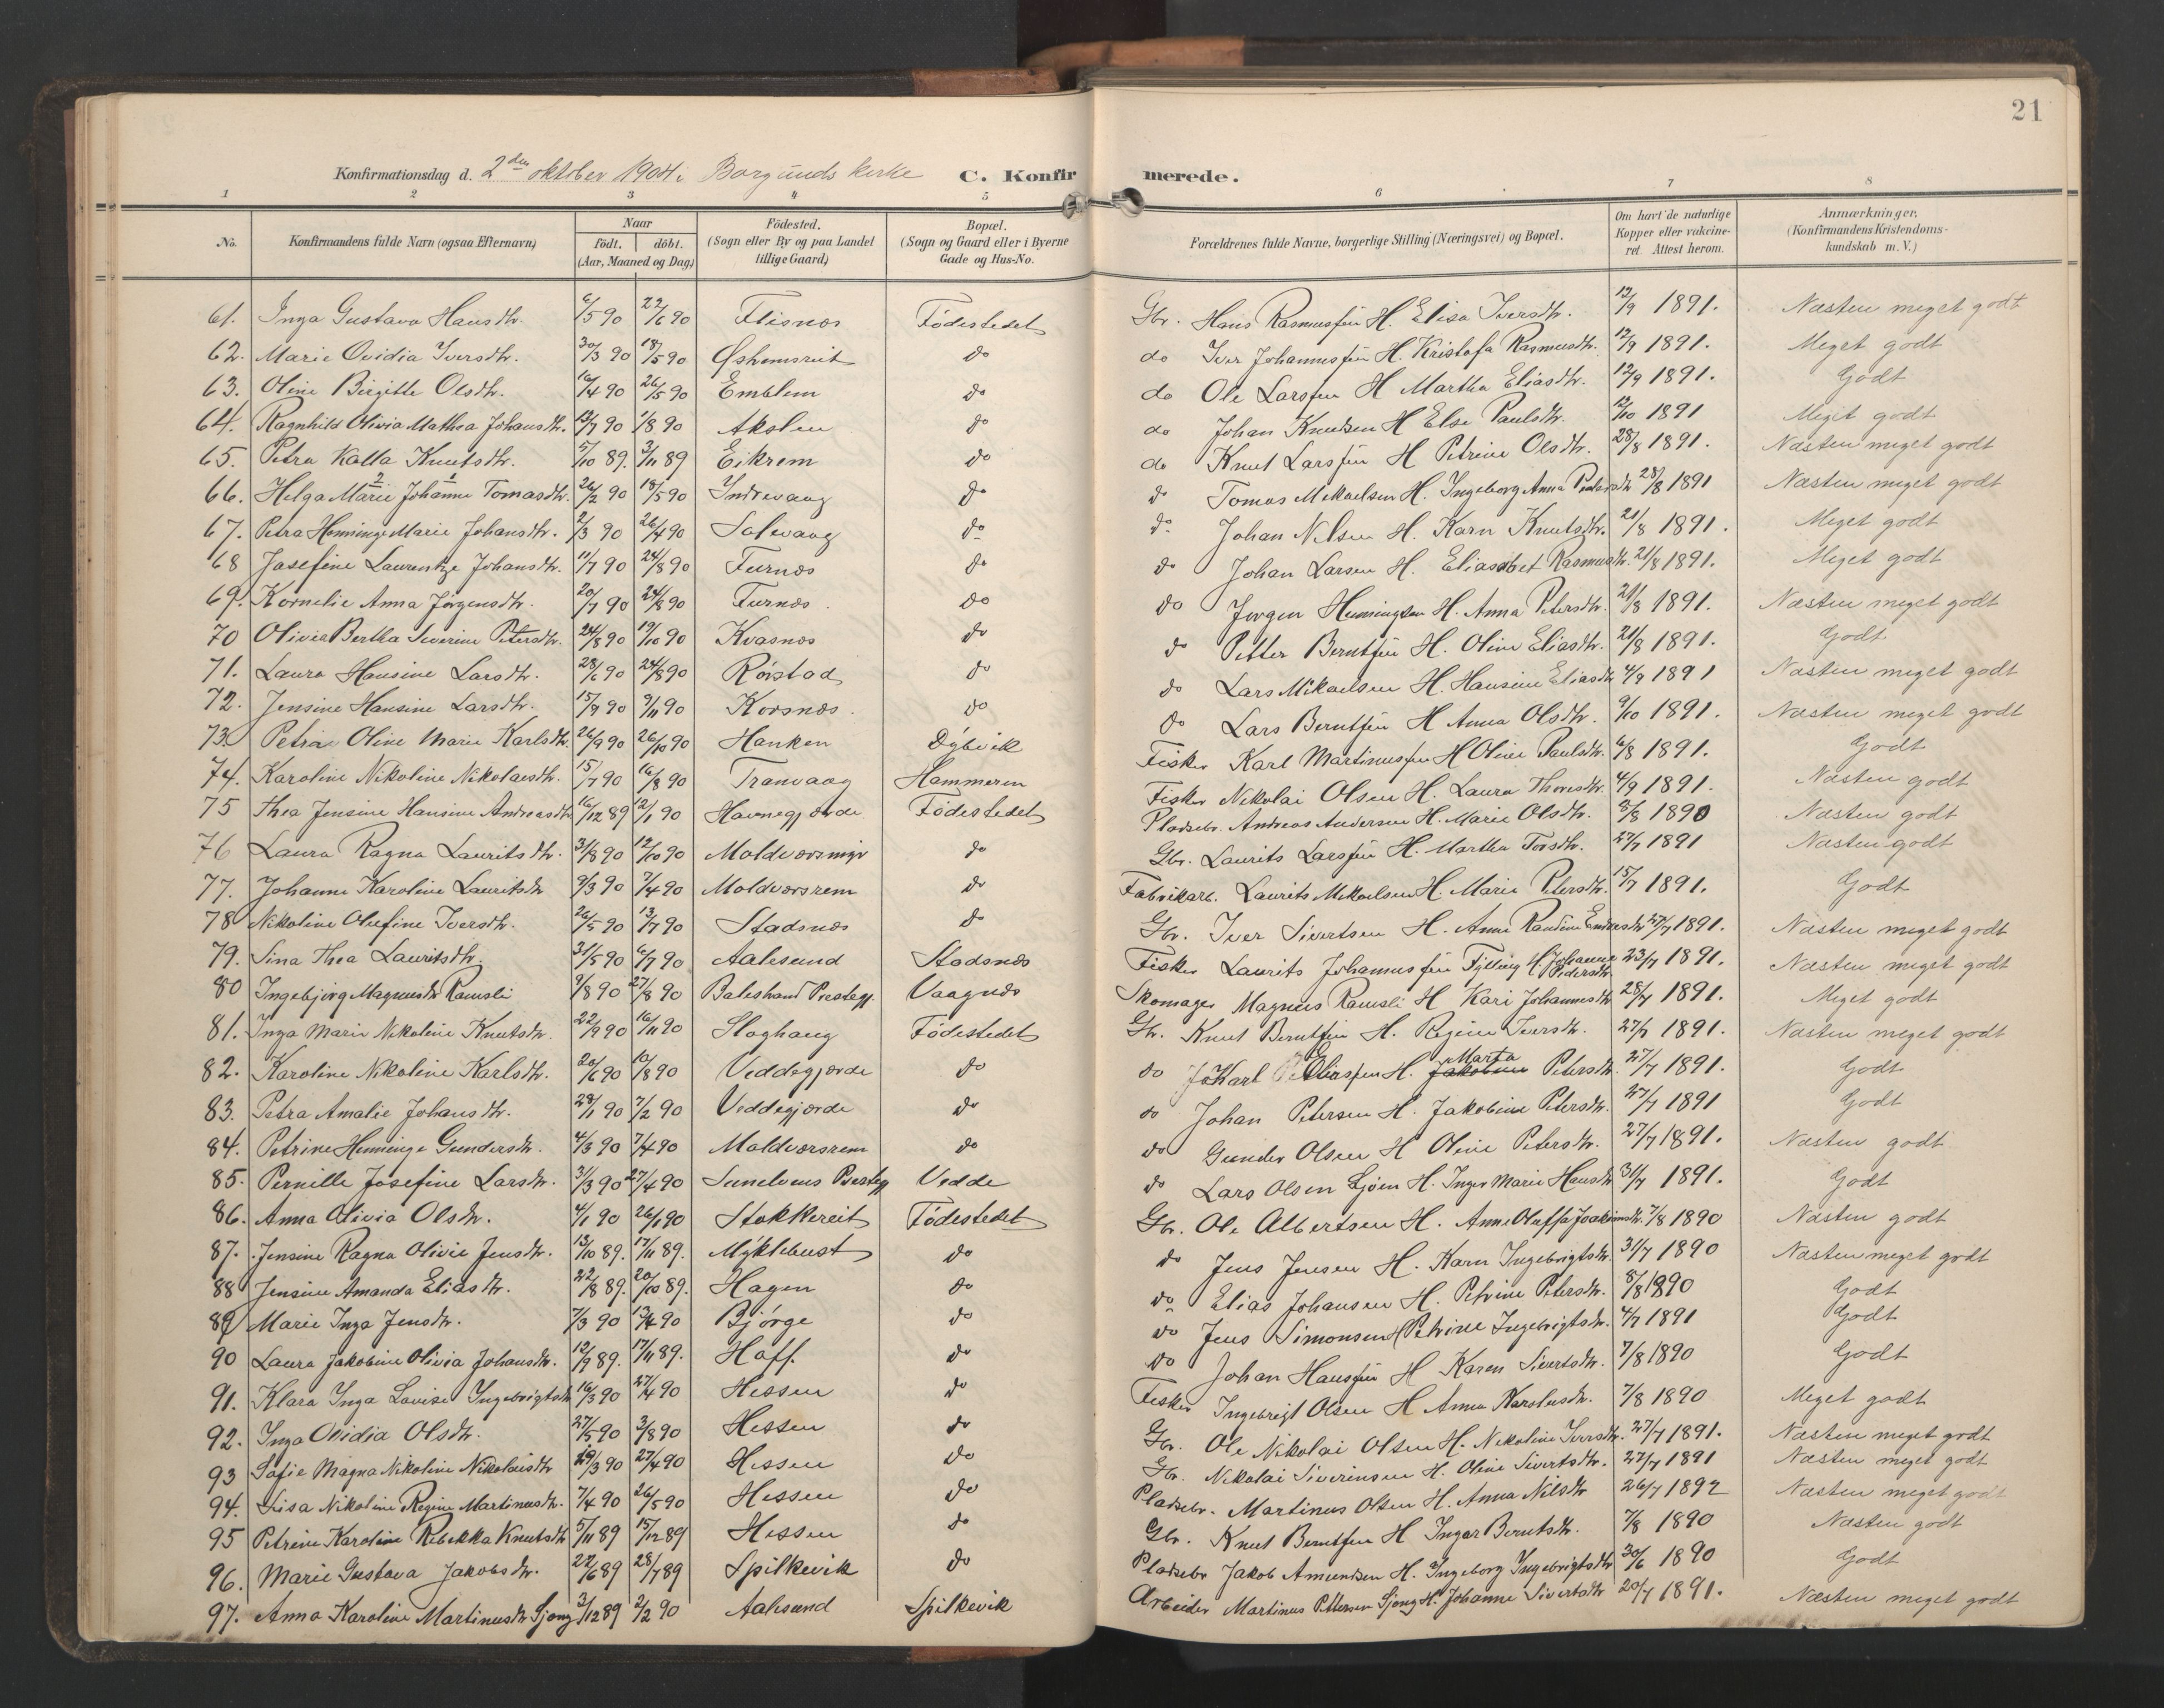 21
Konfirmationsdag d. 2den oktober 1904 i Borgunds kirke C. Konfirmerede.
1 2 3 4 5 6 7 8
No. Konfirmandens fulde Navn (ogsaa Efternavn) Naar født. døbt. (Aar, Maaned og Dag) Fødested. (Sogn eller By og paa Landet tillige Gaard) Bopæl. (Sogn og Gaard eller i Byerne Gade og Hus-No. Forældrenes fulde Navne, borgerlige Stilling (Næringsvei) og Bopæl. Om havt de naturlige Kopper eller vakcineret. Attest herom. Anmærkninger. (Konfirmandens Kristendomskundskab m. V.)
61. Inga Gustava Hansdtr. 6/5 90 22/6 90 Flisnes Fødestedet Gbr. Hans Rasmussen H. Elisa Iversdtr. 12/9 1891. Næsten meget godt
62. Marie Ovidia Iversdtr. 30/3 90 18/5 90 do do Iver Johannessen H. Kristofa Rasmusdtr. 12/9 1891. Meget godt
63. Oline Birgitte Olsdtr. 16/4 90 26/5 90 Emblem do do Ole Larssen H Martha Eliasdtr. 12/9 1891. Godt
64. Ragnhild Olivia Mathea Johansdtr. 13/7 90 1/8 90 Akslen do do Johan Knudsen H Else Paulsdtr. 12/10 1891 Meget godt
65. Petra Kalla Knutsdtr. 5/10 89. 3/11 89 Eikrem do do Knut Larssen H Petrine Olsdtr. 28/8 1891. Næsten meget godt
66. Helga Marie 2 Johanne 1 Tomasdtr. 26/2 90 18/5 90 Indrevaag do do Tomas Mikaelsen H. Ingeborg Anna 28/8 1891 Næsten meget godt
67. Petra Henninge Marie Johansdtr. 2/3 90 26/4 90 Solevaag do do Johan Nilsen H. Karn Knutsdtr. 21/8 1891. Meget godt
68 Josefine Laurentze Johansdtr. 11/7 90 24/8 90 Furnes do do Johan Larsen H. Eliasabet Rasmusdtr. 21/8 1891. Meget godt
69. Kornelie Anna Jørgensdtr. 20/7 90 24/8 90 Furnes do do Jørgen Henningsen H. Anna Petersdtr. 21/8 1891. Næsten meget godt
70 Olivie Bertha Severine Petersdtr. 24/8 90 19/10 90 Kvasnes do do Petter Berntsen H. Oline Eliasdtr. 21/8 1891. Godt
71. Laura Hansine Larsdtr. 28/6 90 24/8 90 Rørstad do do Lars Mikaelsen H. Hansine Eliasdtr 4/9 1891 Næsten meget godt
72. Jensine Hansine Larsdtr. 15/9 90 9/11 90 Korsnes do do Lars Berntsen H Anna Olsdtr. 9/10 1891. Næsten meget godt
73. Petra Oline Marie Karlsdtr. 26/9 90 26/10 90 Hanken Dybvik Fisker Karl Martinussen H Oline Paulsdtr. 6/8 1891. Godt
74. Karoline Nikoline Nikolaisdtr. 15/7 90 16/8 90 Tranvaag Hammeren Fisker Nikolai Olsen H. Laura Thoresdtr. 4/9 1891. Næsten godt
75 Thea Jensine Hansine Andreasdtr 16/12 89 12/1 90 Havnegjærde Fødestedet Pladsebr. Andreas Andersen H. Marie Olsdtr. 8/8 1890 Næsten godt
76 Laura Ragna Lauritsdtr. 31/8 90 12/10 90 do Gbr. Laurits Larssen H. Martha Torsdtr. 27/7 1891 Næsten godt
77. Johanne Karoline Lauritsdtr 9/3 90 7/4 90 Moldværsrem do Fabrikarb. Laurits Mikaelsen H. Marie Petersdtr. 15/7 1891. Godt
78 Nikoline Olufine Iversdtr. 26/5 90 13/7 90 Stadsnes do Gbr. Iver Sivertsen H. Anne Randine 27/7 1891. Næsten meget godt
79. Sina Thea Lauritsdtr. 31/5 90 6/7 90 Aalesund Stadsnes Fisker Laurits Johannessen Fylling H Johanne Pedersdtr. 23/7 1891. Næsten meget godt
80 Ingebjørg Magnusdtr Ramsli 9/8 90 27/8 90 Balestrand Prestegj. Vaagnes Skomager Magnus Ramsli H Kari Johannesdtr 28/7 1891. Meget godt
81. Inga Marie Nikoline Knutsdtr. 22/9 90 16/11 90 Sloghaug Fødestedet Gbr. Knut Berntsen H. Regine Iversdtr. 27/7 1891. Næsten meget godt
82. Karoline Nikoline Karlsdtr. 20/6 90 10/8 90 Veddegjærde do do Karl Eliassen H. Jakobine Marta Petersdtr. 27/7 1891. Godt
83. Petra Amalie Johansdtr. 28/1 90 7/2 90 Veddegjærde do do Johan Petersen H. Jakobine Petersdtr. 27/7 1891 Godt
84. Petrine Henninge Gundersdtr. 4/3 90 7/4 90 Moldværsrem do do Gunder Olsen H Oline Petersdtr. 27/7 1891. Næsten godt
85. Pernille Josefine Larsdtr. 3/3 90 27/4 90 Sunelvens Prestegj Vedde do Lars Olsen H. Inger Marie Hansdtr 31/7 1891. Godt
86. Anna Olivia Olsdtr. 4/1 90 26/1 90 Stokkereit Fødestedet Gbr. Ole Albertsen H. Anne Oluffa Joakimsdtr. 7/8 1890 Næsten godt
87. Jensine Ragna Olivie Jensdtr. 13/10 89. 17/11 89. Myklebust do do Jens Jensen H. Karn Ingebrigtsdtr. 31/7 1890 Næsten meget godt
88 Jensine Amanda Eliasdtr. 22/8 89. 20/10 89. Hagen do do Elias Johansen H. Petrine Petersdtr. 8/8 1890 Godt
89 Marie Inga Jensdtr. 7/3 90 13/4 90 Bjørge do do Jens Simonsen H Petrine Ingebrigtsdtr. 4/7 1891 Godt
90 Laura Jakobine Olivia Johansdtr. 12/9 89. 17/11 89. Hoff. do do Johan Hanssen H Karen Sivertsdtr. 7/8 1890 Godt
91. Klara Inga Lovise Ingebrigtsdtr 16/3 90 27/4 90 Hessen do Fisker Ingebrigt Olsen H Anna Karolusdtr. 7/8 1890 Meget godt
92. Inga Ovidia Olsdtr. 27/5 90 3/8 90 Hessen do Gbr. Ole Nikolai Olsen H. Nikoline Iversdtr. 27/7 1891. Næsten meget godt
93 Sofie Magna Nikoline Nikolaisdtr 19/3 90 27/4 90 Hessen do Gbr. Nikolai Siverinsen H. Oline Sivertsdtr. 27/7 1891 Næsten meget godt
94. Lisa Nikoline Regine Martinusdtr. 7/4 90 26/5 90 Hessen do Pladsebr. Martinus Olsen H. Anna Nilsdtr 26/7 1892 Næsten meget godt
95 Petrine Karoline Rebekka Knutsdtr 5/11 89 15/12 89 Hessen do Gbr. Knut Berntsen H Inger Berntsdtr. 7/8 1890 Næsten godt
96. Marie Gustava Jakobsdtr. 22/6 89 28/7 89 Spilkevik do Pladsebr Jakob Amundsen H. Ingeborg Ingebrigtsdtr 30/6 1890 Godt
97. Anna Karoline Martinusdtr Sjong 3/12 89 2/2 90 Aalesund Spilkevik Arbeider Martinus Pettersen Sjong H. Johanne Sivertsdtr 20/7 1891. Næsten meget godt